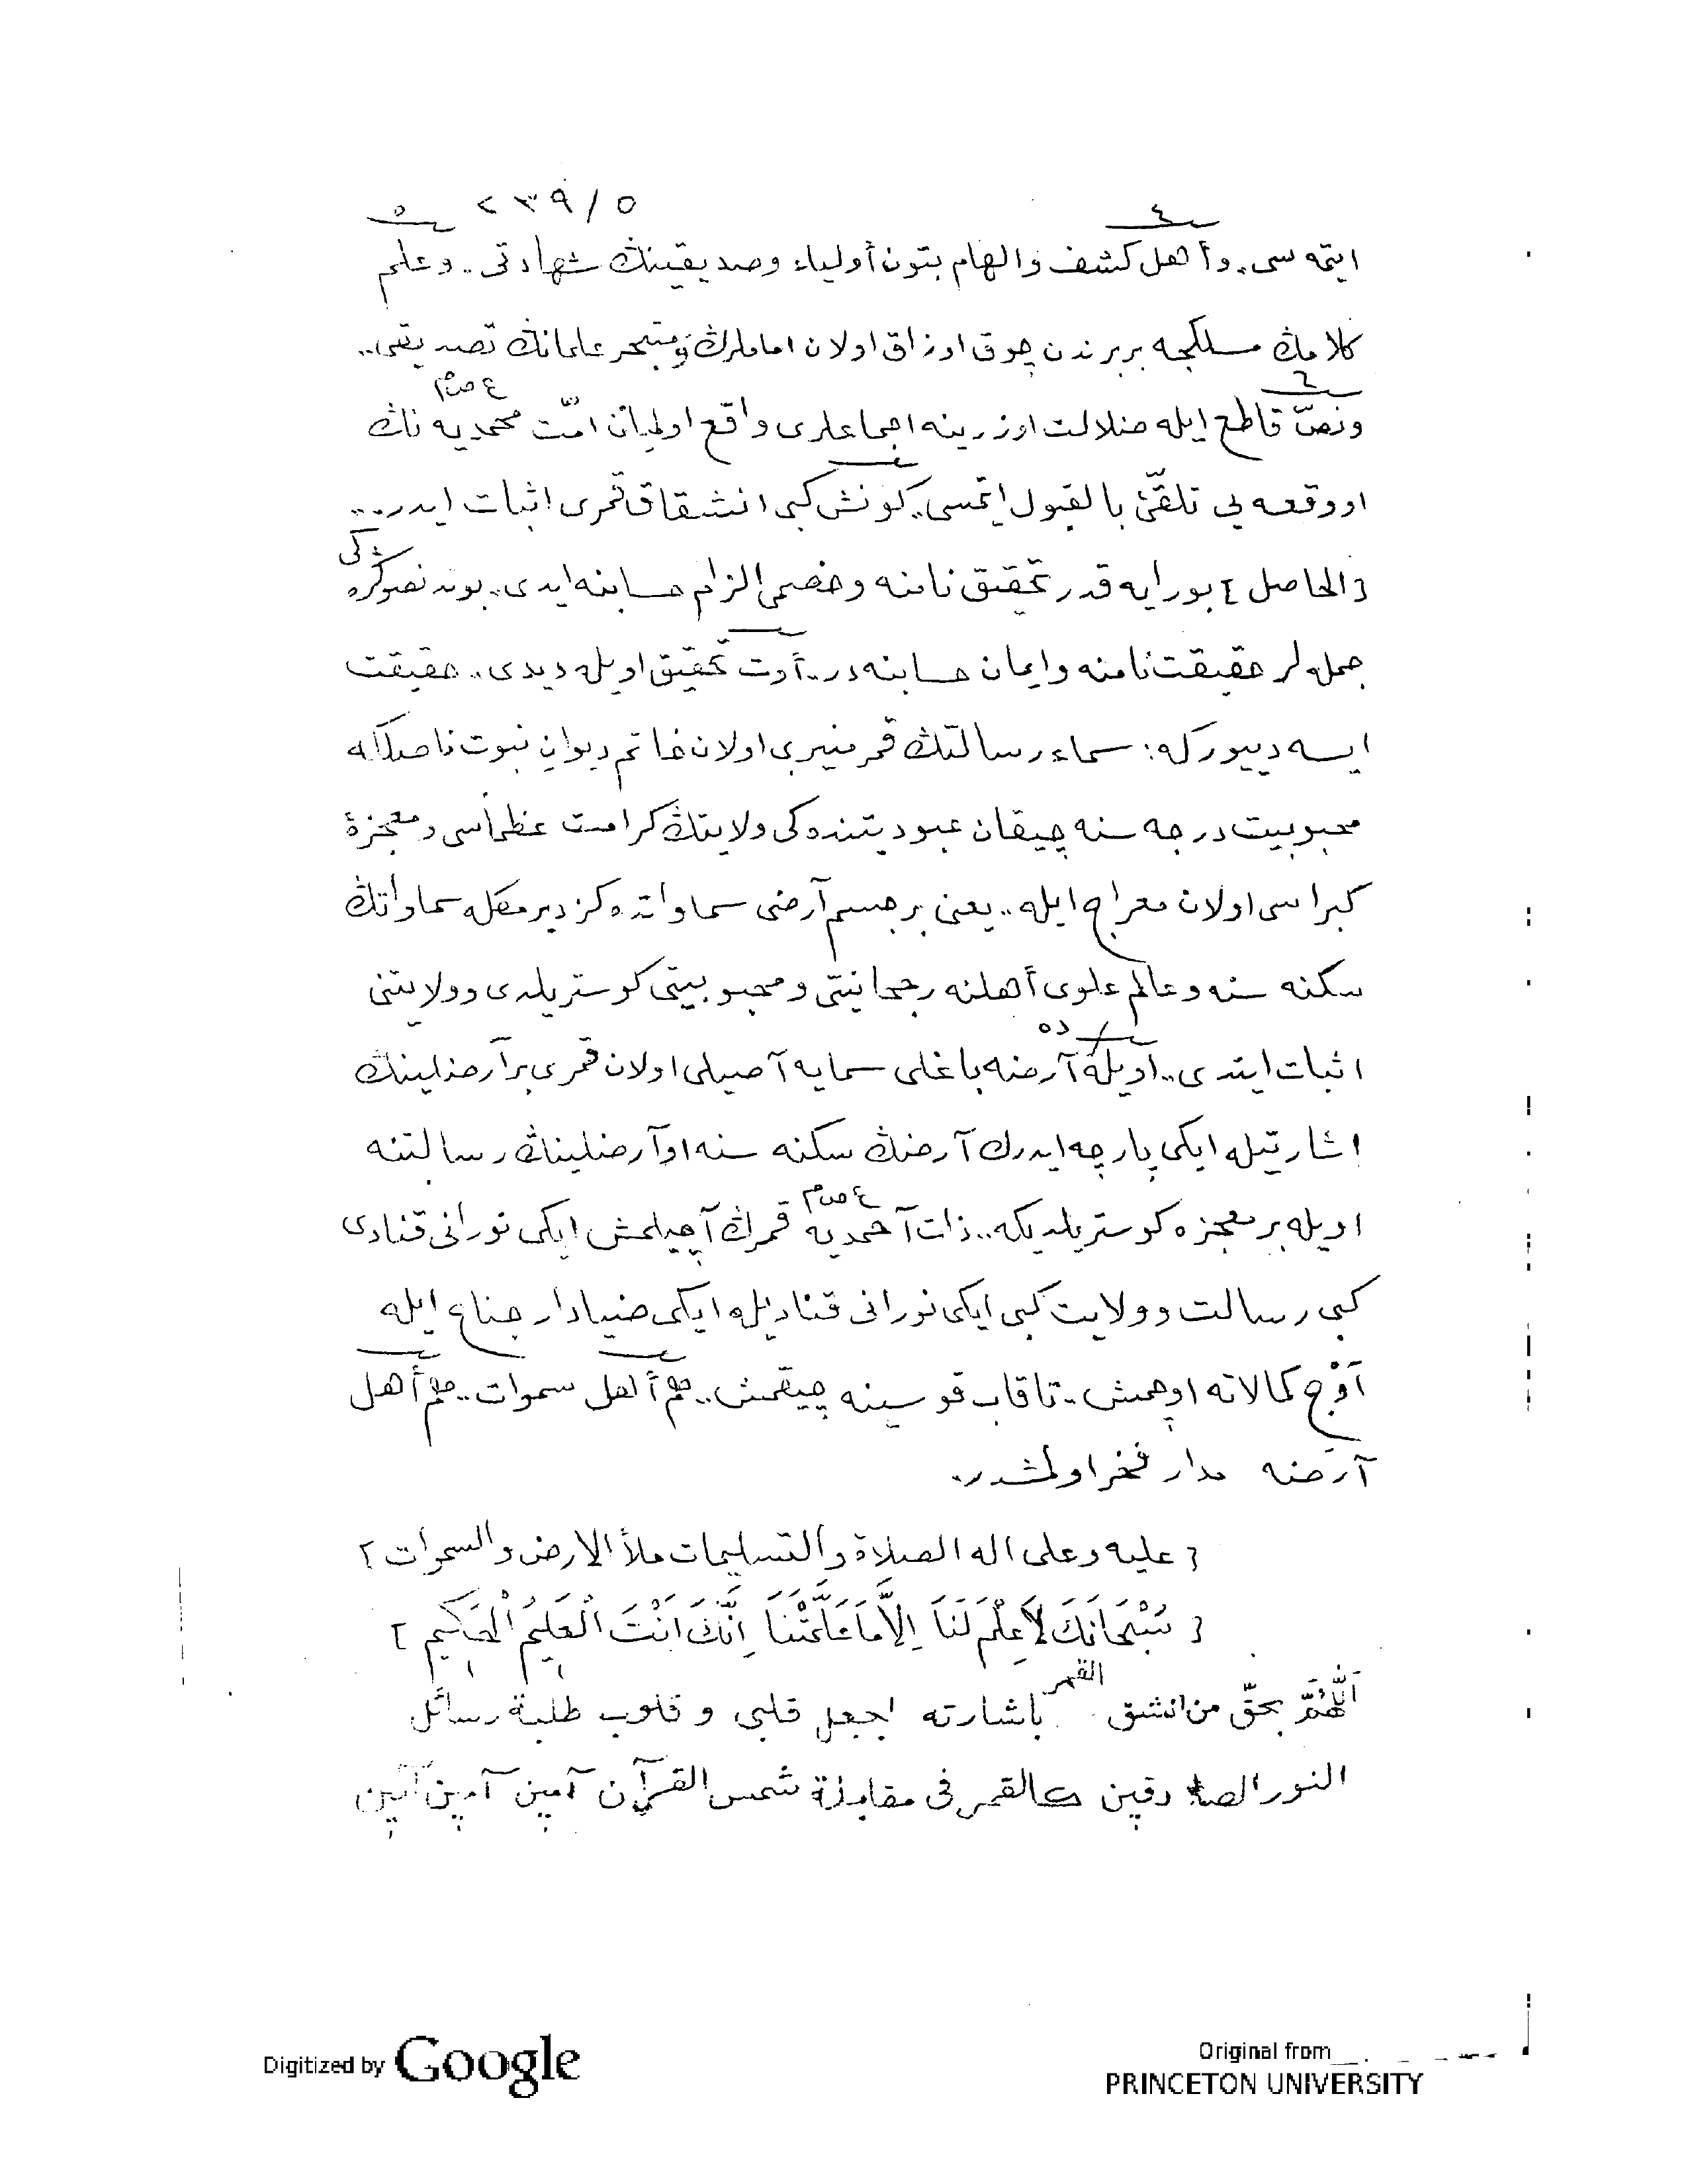 ٥ / ٢٣٩
ايتمه سی.. وأهل كشف والهام بتون أولياء وصديقينڭ شهادتی.. وعلم
كلامڭ مسلكجه بربرندن چوق اوزاق اولان اماملرڭ ومتبحر علمانڭ تصديقی..
ونصّ قاطع ايله ضلالت اوزرينه اجماعلری واقع اولميان امّت محمديه نڭ ع ص م
او وقعه یی تلقّئ بالقبول ايتمسی.. كونش كبی انشقاق قمری اثبات ايدر...
[الحاصل] بورايه قدر تحقيق نامنه وخصمی الزام حسابنه ايدی.. بوندنصوكره كی
جمله لر حقيقت نامنه وايمان حسابنه در.. أوت تحقيق اويله ديدی.. حقيقت
ايسه دييوركه: سماء رسالتڭ قمر منيری اولان خاتم ديوان نبوت ناصلكه
محبوبيت درجه سنه چيقان عبوديتنده كی ولايتڭ كرامت عظماسی ومعجزۀ
كبراسی اولان معراج ايله.. يعنی بر جسم آرضی سماواتده كزديرمكله سماواتڭ
سكنه سنه وعالم علوی أهلنه رجحانيتی ومحبوبيتی كوستريلدی وولايتنی
اثبات ايتدی.. اويله ده آرضه باغلی سمايه آصيلی اولان قمری بر آرضلينڭ
اشارتيله ايكی پارچه ايدرك آرضڭ سكنه سنه او آرضلينڭ رسالتنه
اويله بر معجزه كوستريلديكه.. ذات آحمديه ع ص م قمرڭ آچيلمش ايكی نورانی قنادی
كبی رسالت وولايت كبی ايكی نورانی قناديله ايكی ضيادار جناح ايله
آوْج كمالاته اوچمش.. تا قاب قوسينه چيقمش.. هم أهل سموات.. هم أهل
آرضه مدار فخر اولمشدر..
[عليه وعلى اله الصلاة والتسليمات ملأ الارض والسموات]
[سُبْحَانَكَ لاَعِلْمَ لَنَا اِلاَّ مَا عَلَّمْتَنَا اِنَّكَ اَنْتَ الْعَلِيمُ الْحَكِيم]
اَللّٰهُمَّ بحقّ من انشق القمر باشارته اجعل قلبی و قلوب طلبة رسائل
النور الصادقين كالقمر فی مقابلة شمس القرآن آمين آمين آمين
Digitized by Google
Original from
PRINCETON UNIVERSITY